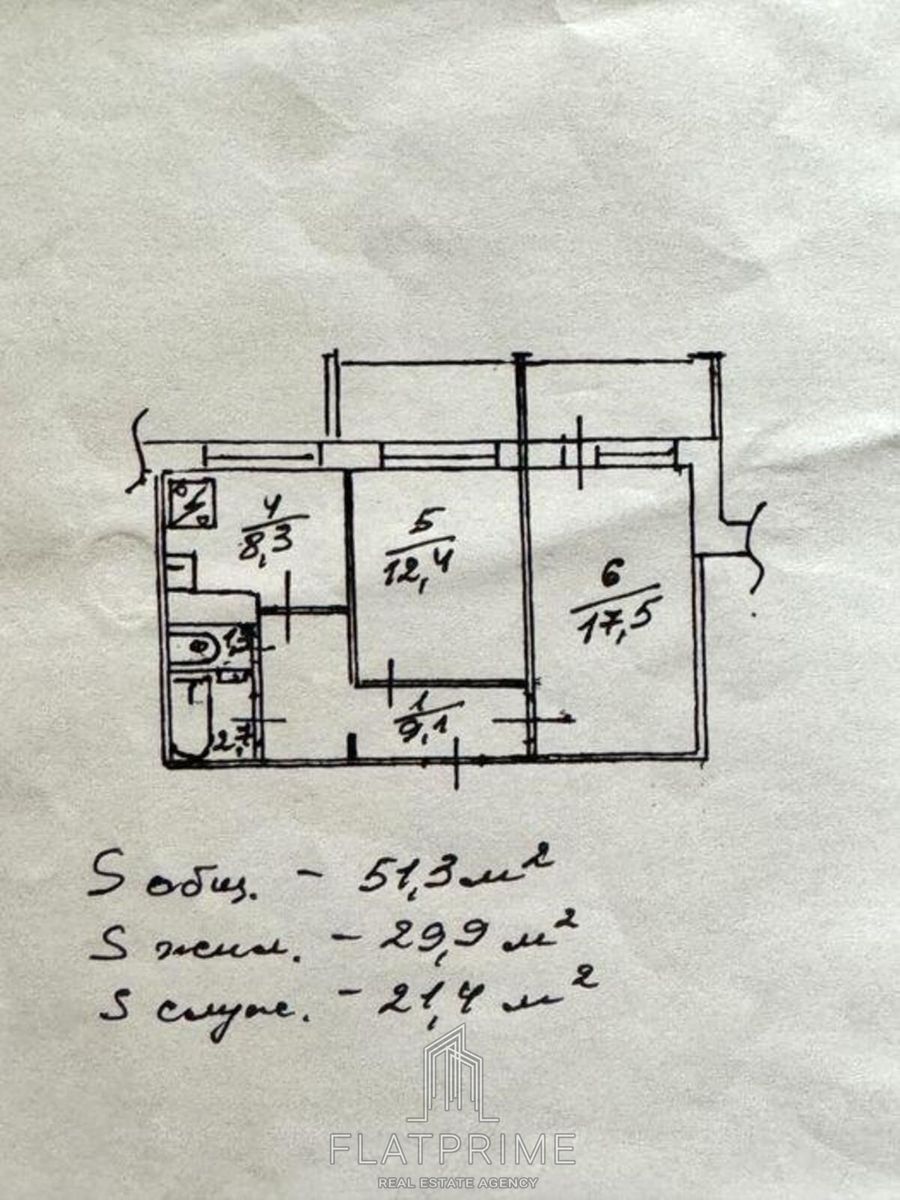 4
8,3
5
12,4
6
17,5
1,3
1
9,1
2,7
S общ. - 51,3 м²
S жил. - 29,9 м²
S служ. - 21,4 м²
FLATPRIME
REAL ESTATE AGENCY